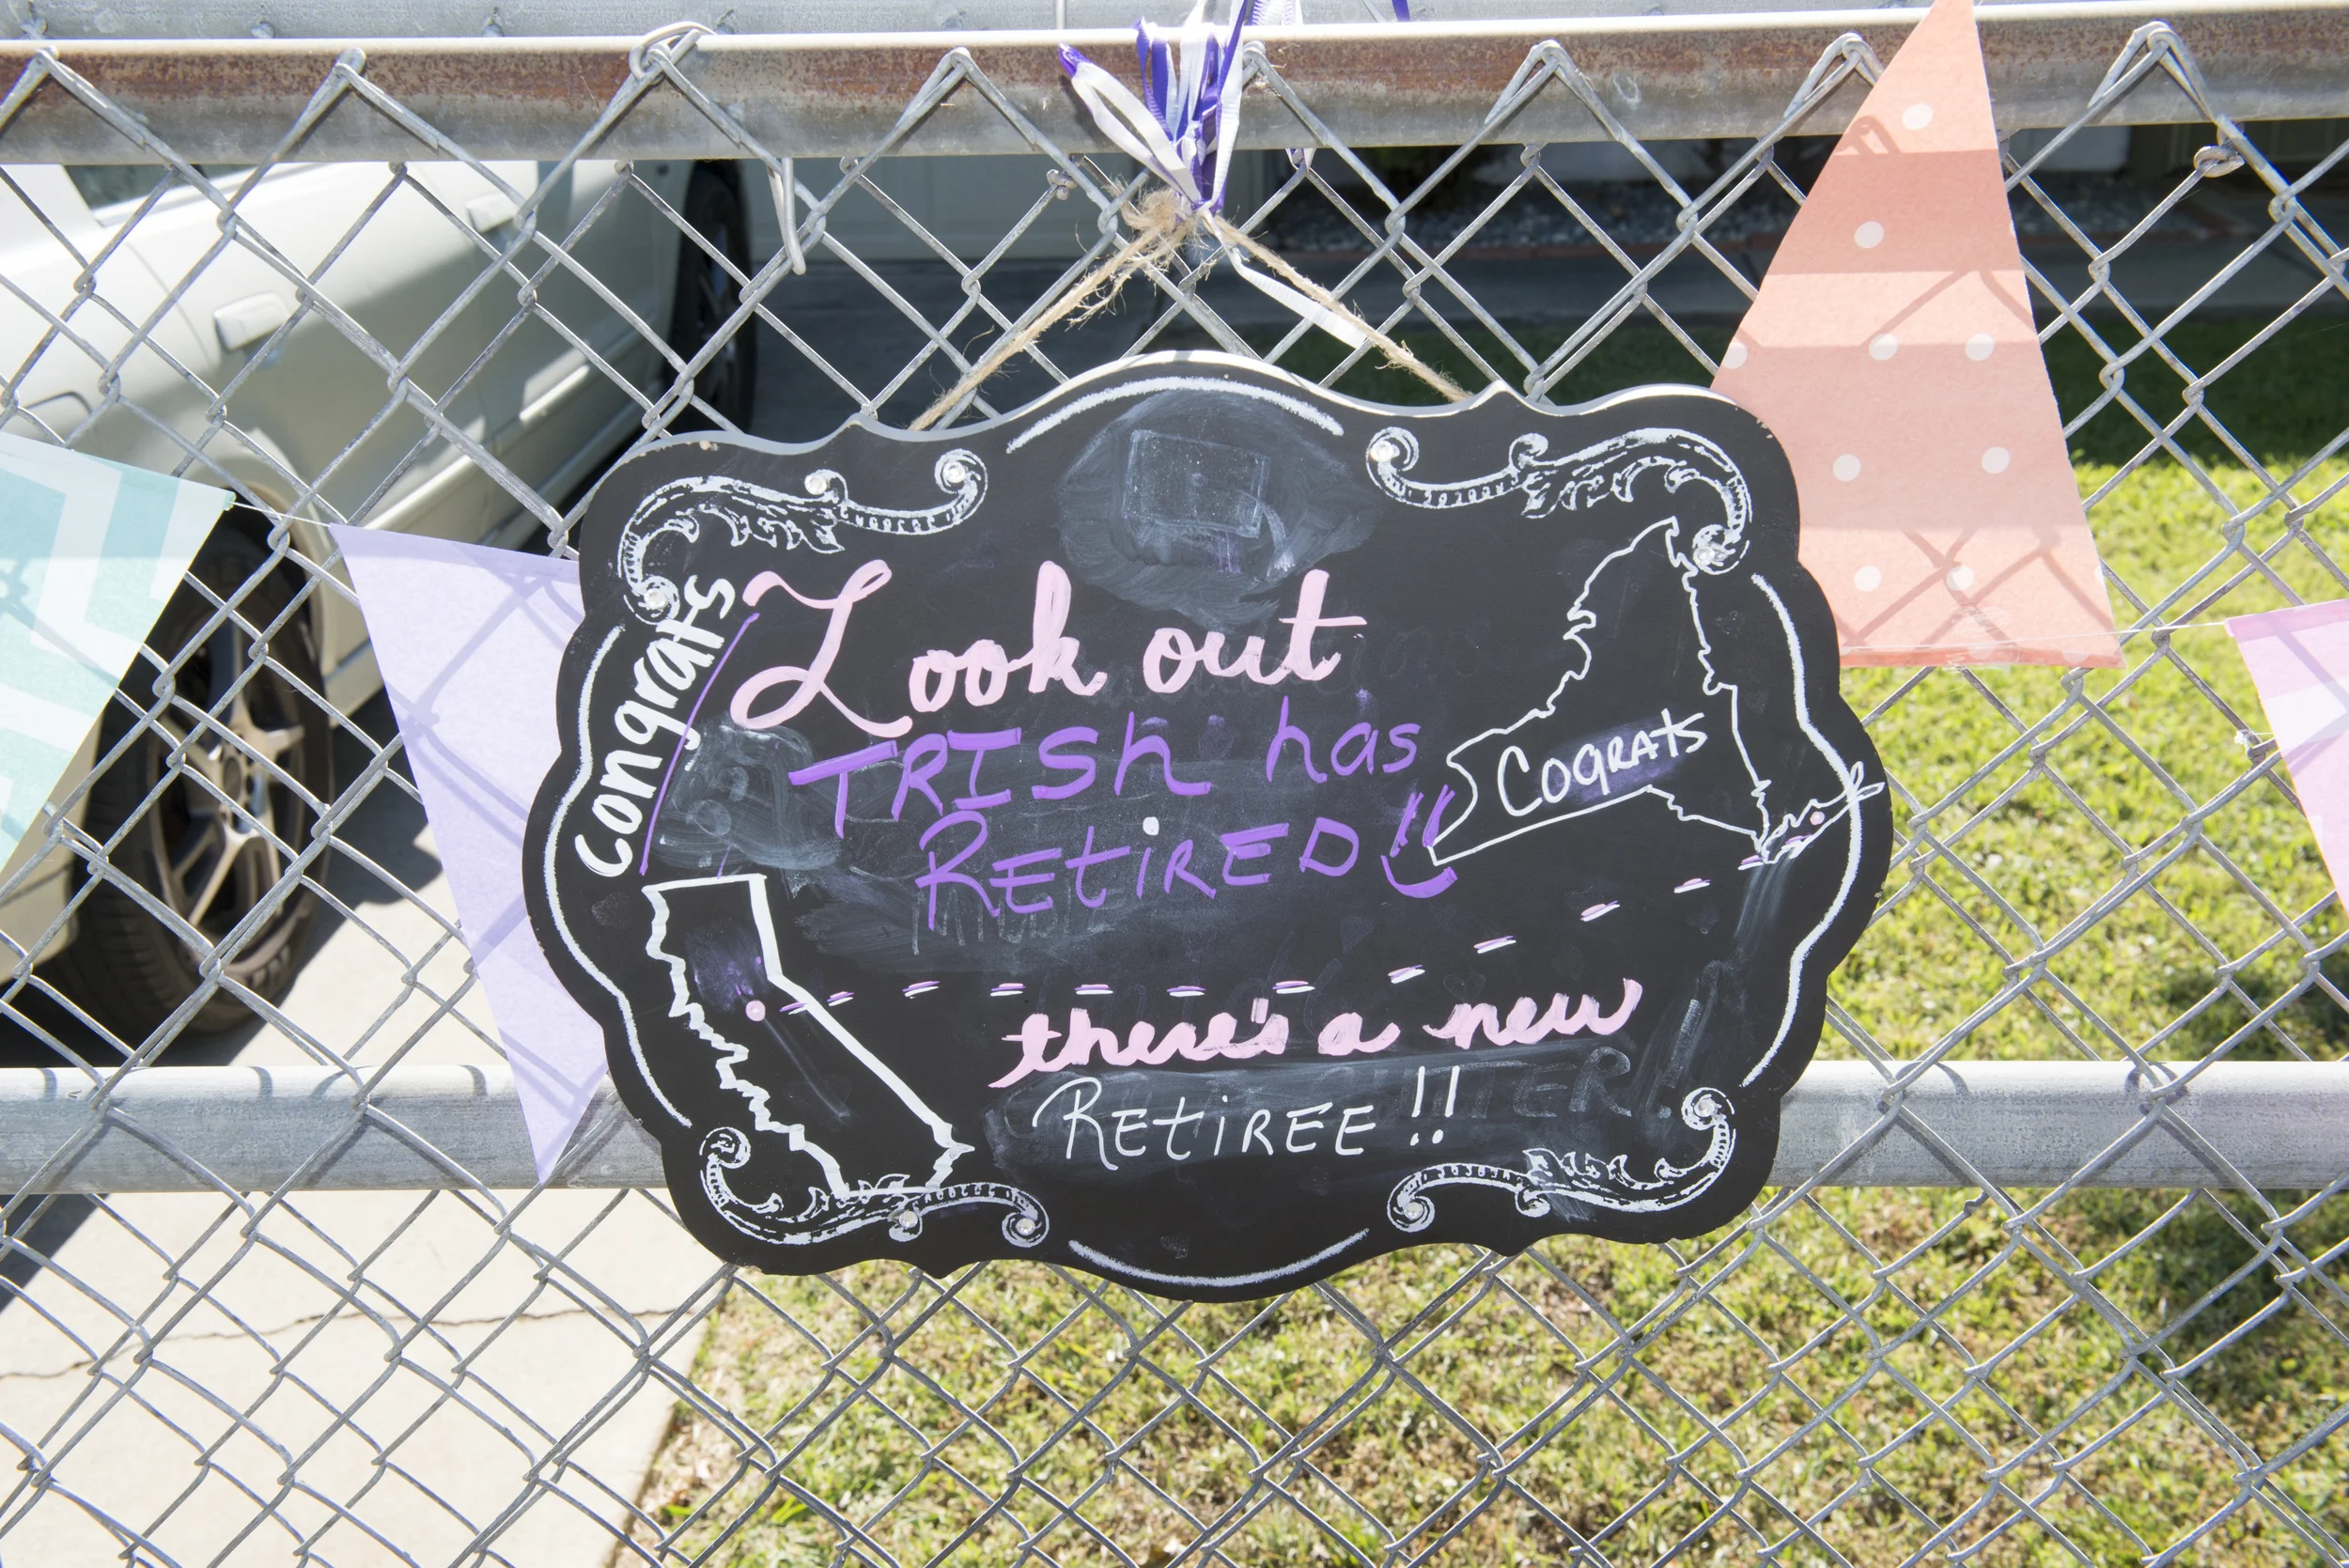 Congrats
Look out
TRISh has
REtiRED!!
COGRATS
there's a new
REtiREE!!